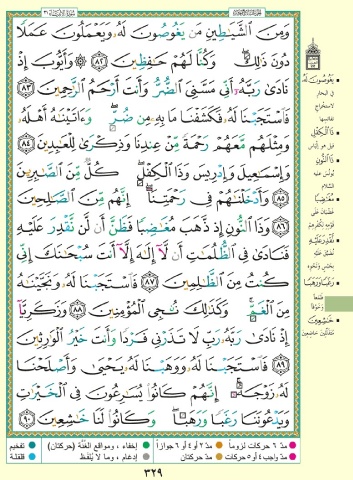 وَمِنَ ٱلشَّيَٰطِينِ مَن يَغُوصُونَ لَهُۥ وَيَعْمَلُونَ عَمَلًا
دُونَ ذَٰلِكَ ۖ وَكُنَّا لَهُمْ حَٰفِظِينَ ٨٢ ۞ وَأَيُّوبَ إِذْ
نَادَىٰ رَبَّهُۥٓ أَنِّي مَسَّنِيَ ٱلضُّرُّ وَأَنتَ أَرْحَمُ ٱلرَّٰحِمِينَ ٨٣
فَٱسْتَجَبْنَا لَهُۥ فَكَشَفْنَا مَا بِهِۦ مِن ضُرٍّ ۖ وَءَاتَيْنَٰهُ أَهْلَهُۥ
وَمِثْلَهُم مَّعَهُمْ رَحْمَةً مِّنْ عِندِنَا وَذِكْرَىٰ لِلْعَٰبِدِينَ ٨٤
وَإِسْمَٰعِيلَ وَإِدْرِيسَ وَذَا ٱلْكِفْلِ ۖ كُلٌّ مِّنَ ٱلصَّٰبِرِينَ
٨٥ وَأَدْخَلْنَٰهُمْ فِي رَحْمَتِنَآ ۖ إِنَّهُم مِّنَ ٱلصَّٰلِحِينَ
٨٦ وَذَا ٱلنُّونِ إِذ ذَّهَبَ مُغَٰضِبًا فَظَنَّ أَن لَّن نَّقْدِرَ عَلَيْهِ
فَنَادَىٰ فِي ٱلظُّلُمَٰتِ أَن لَّآ إِلَٰهَ إِلَّآ أَنتَ سُبْحَٰنَكَ إِنِّي
كُنتُ مِنَ ٱلظَّٰلِمِينَ ٨٧ فَٱسْتَجَبْنَا لَهُۥ وَنَجَّيْنَٰهُ
مِنَ ٱلْغَمِّ ۚ وَكَذَٰلِكَ نُـۨجِي ٱلْمُؤْمِنِينَ ٨٨ وَزَكَرِيَّآ
إِذْ نَادَىٰ رَبَّهُۥ رَبِّ لَا تَذَرْنِي فَرْدًا وَأَنتَ خَيْرُ ٱلْوَٰرِثِينَ
٨٩ فَٱسْتَجَبْنَا لَهُۥ وَوَهَبْنَا لَهُۥ يَحْيَىٰ وَأَصْلَحْنَا
لَهُۥ زَوْجَهُۥٓ ۚ إِنَّهُمْ كَانُوا۟ يُسَٰرِعُونَ فِي ٱلْخَيْرَٰتِ
وَيَدْعُونَنَا رَغَبًا وَرَهَبًا ۖ وَكَانُوا۟ لَنَا خَٰشِعِينَ ٩٠
يَغُوصُونَ لَهُ
ذَا الْكِفْلِ
ذَا النُّونِ
مُغَاضِبًا
رَغَبًا وَرَهَبًا
خَاشِعِينَ
مدّ ٦ حركات لزوماً
مدّ ٢ أو ٤ أو ٦ جوازاً
إخفاء، ومواقع الغُنَّة (حركتان)
تفخيم
مدّ واجب ٤ أو ٥ حركات
مدّ حركتان
إدغام، وما لا يُلفَظ
قلقلة
٣٢٩